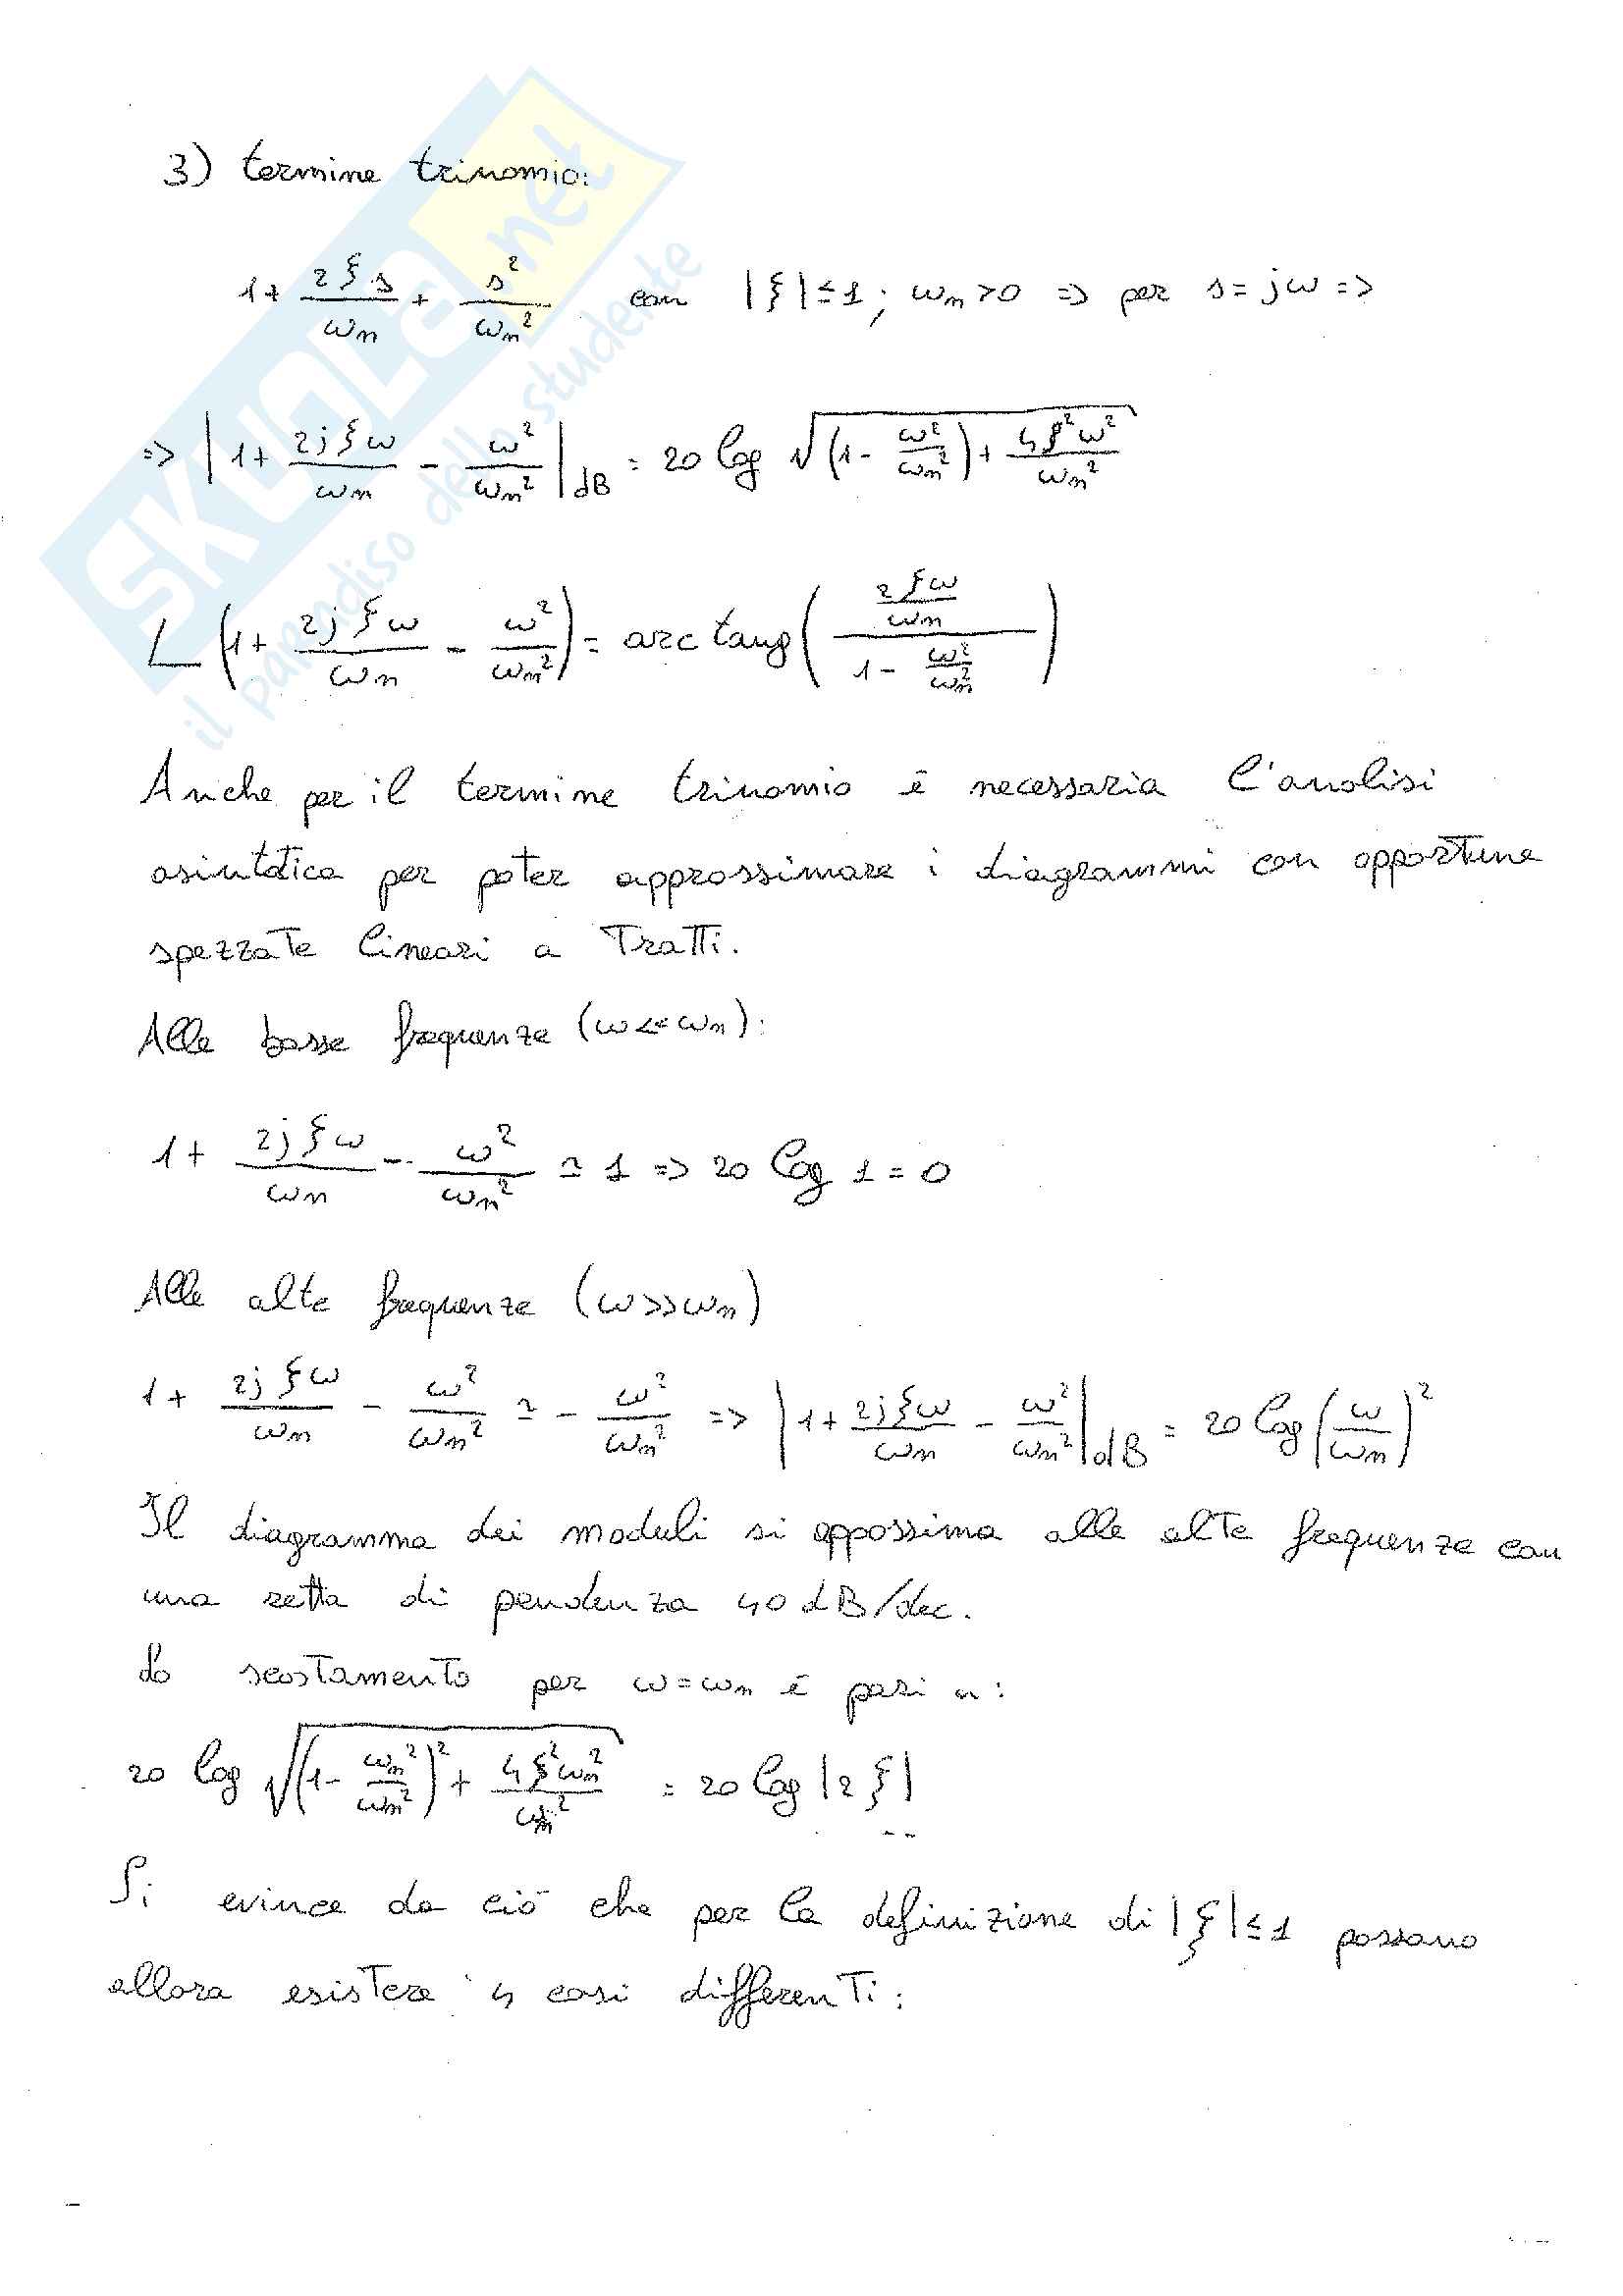 SKUOLA.net
il paradiso dello studente
3) termine trinomio:
1+ 2ξs/ωn + s²/ωn² con |ξ|≤1; ωn>0 => per s=jω =>
=> |1+ 2jξω/ωn - ω²/ωn²|dB = 20 log √((1- ω²/ωn²)+ 4ξ²ω²/ωn²)
∠(1+ 2jξω/ωn - ω²/ωn²) = arctang((2ξω/ωn)/(1- ω²/ωn²))
Anche per il termine trinomio è necessaria l'analisi
asintotica per poter approssimare i diagrammi con opportune
spezzate lineari a Tratti.
Alle basse frequenze (ω<<ωn):
1+ 2jξω/ωn - ω²/ωn² ≃ 1 => 20 log 1 = 0
Alle alte frequenze (ω>>ωn)
1+ 2jξω/ωn - ω²/ωn² ≃ - ω²/ωn² => |1+ 2jξω/ωn - ω²/ωn²|dB = 20 log(ω/ωn)²
Il diagramma dei moduli si appossima alle alte frequenze con
una retta di pendenza 40 dB/dec.
Lo scostamento per ω=ωn è pari a:
20 log √((1- ωn²/ωn²)² + 4ξ²ωn²/ωn²) = 20 log|2ξ|
Si evince da ciò che per la definizione di |ξ|≤1 possano
allora esistere 4 casi differenti: